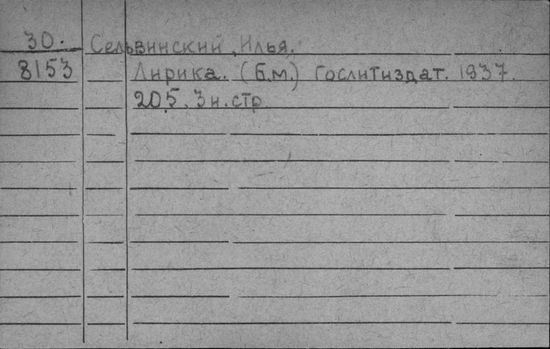 30. Сельвинский, Илья.
8153 Лирика. (б.м.) Гослитиздат. 1937.
205, 3 н. стр